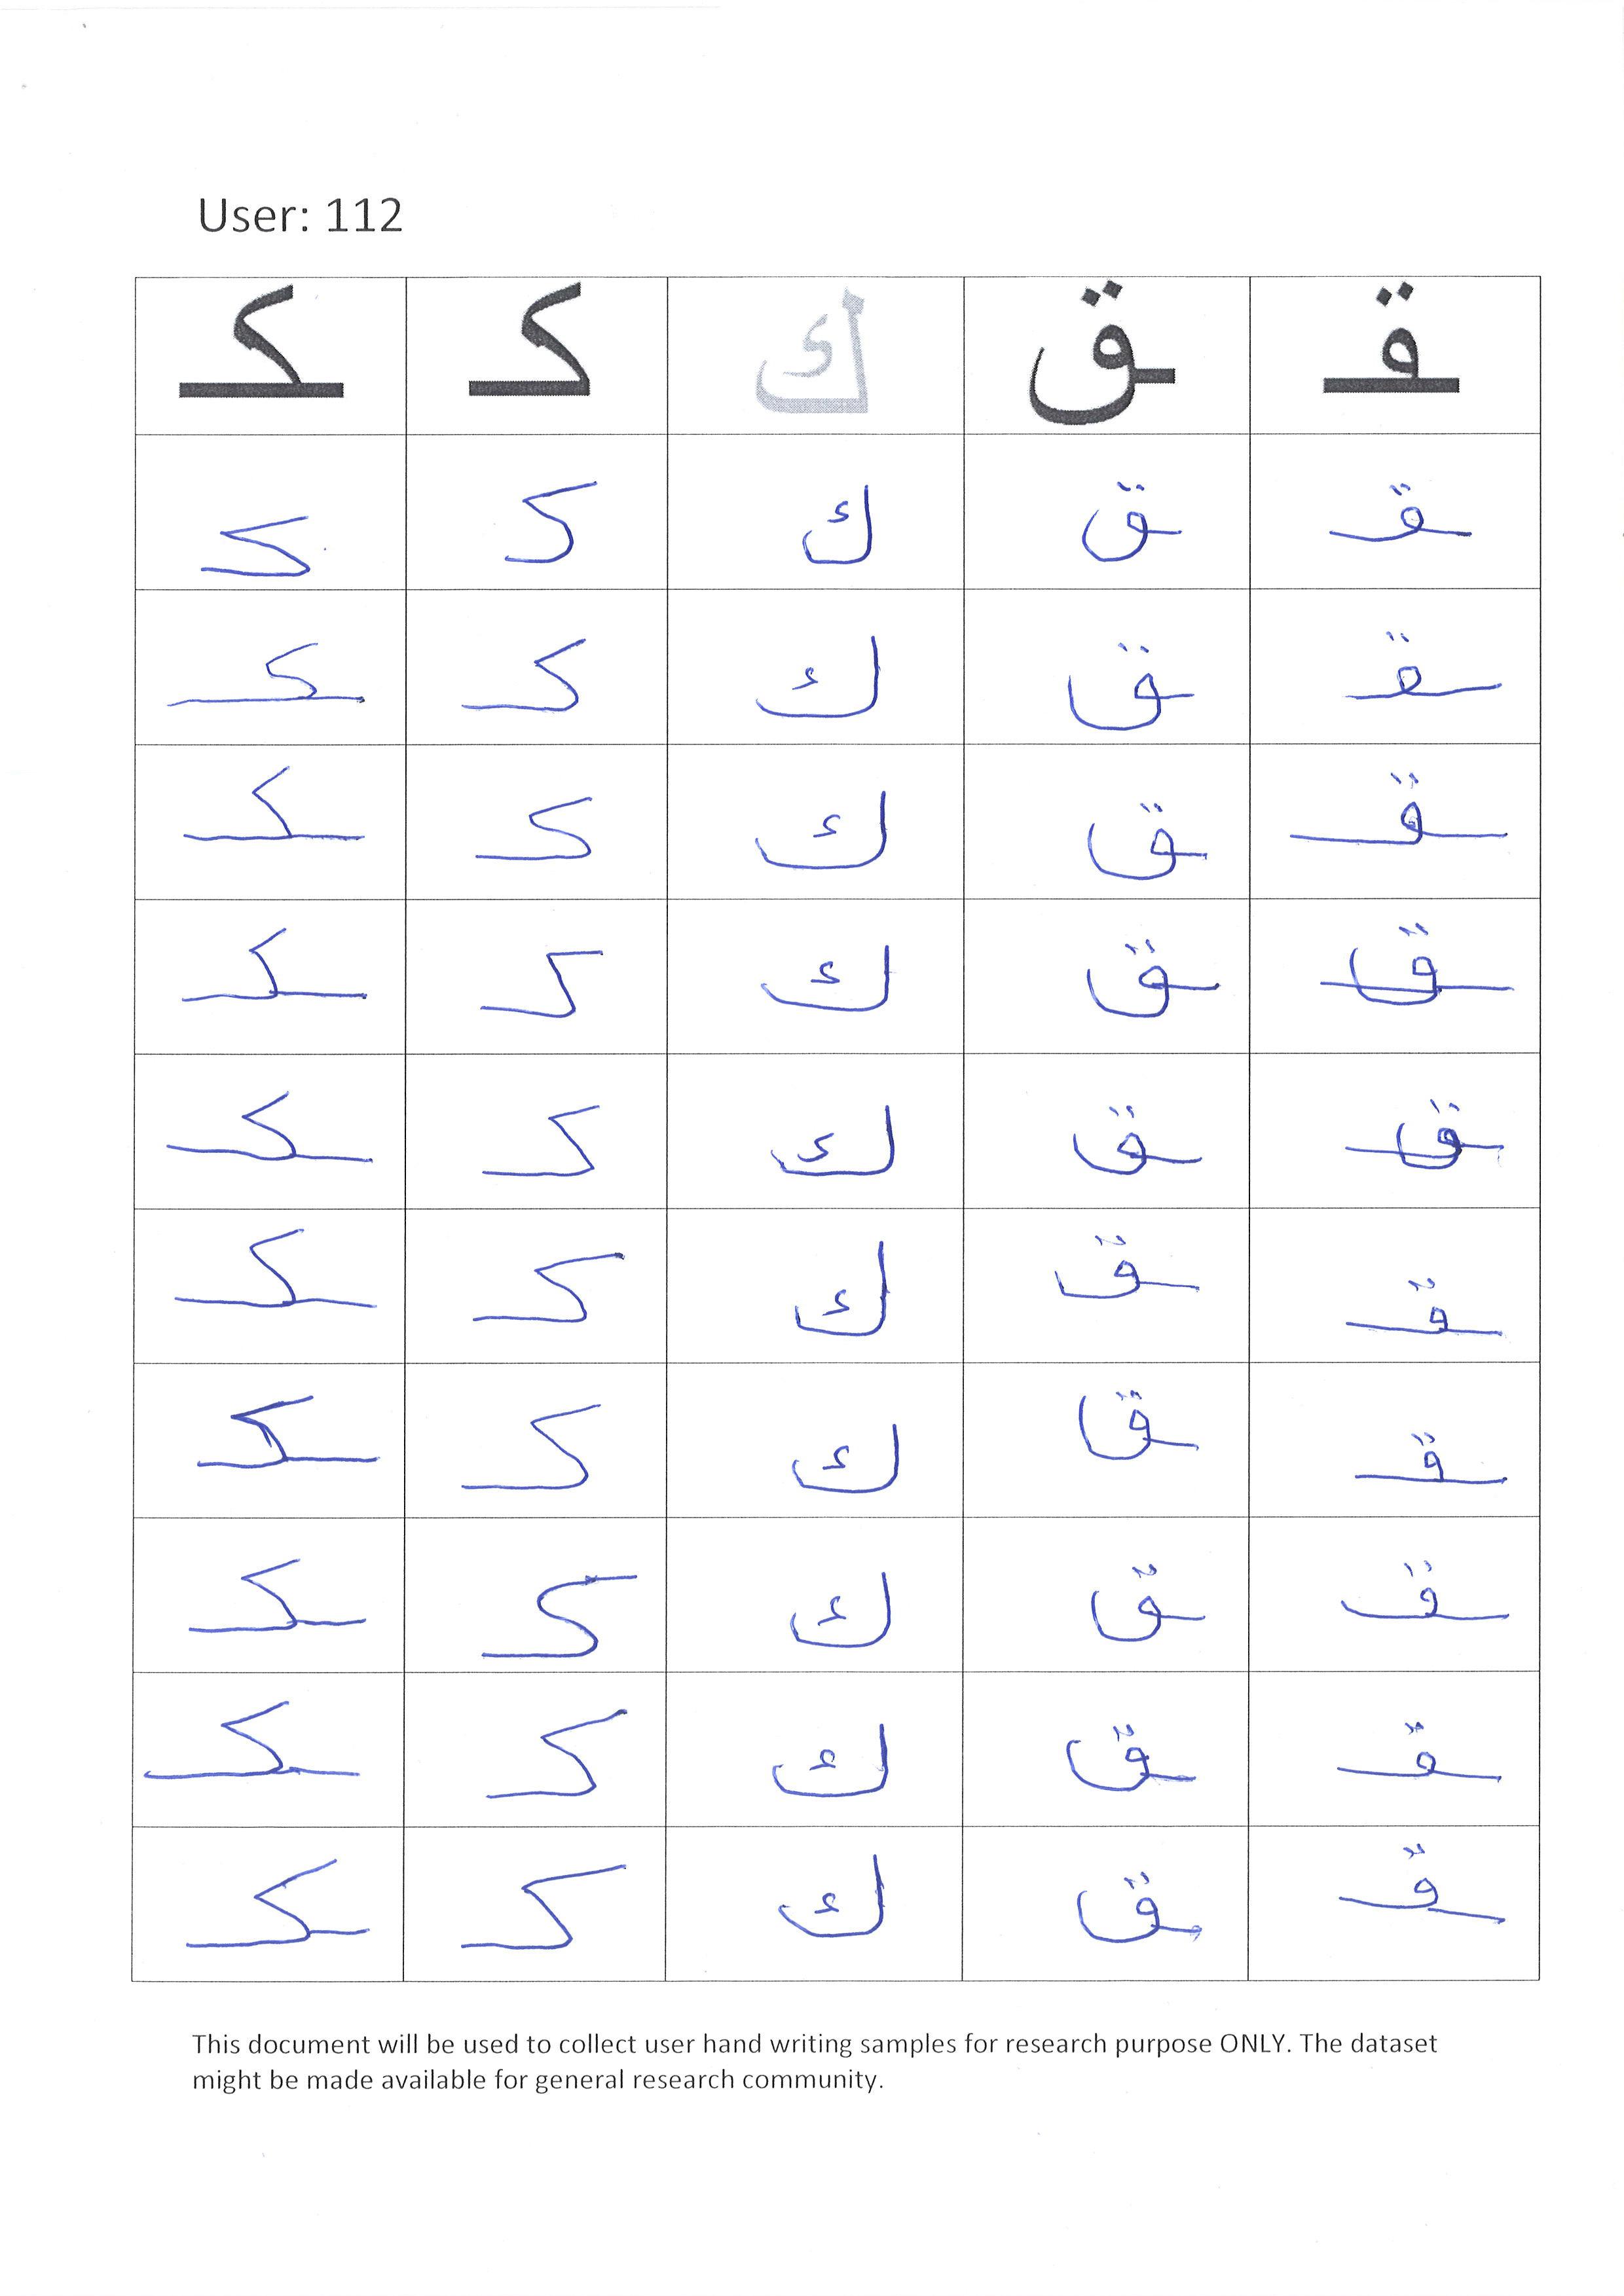 User: 112
ـكـ كـ ك ـق ـقـ
كـ كـ ك ـق ـقـ
ـكـ كـ ك ـق ـقـ
ـكـ كـ ك ـق ـقـ
ـكـ كـ ك ـق ـقـ
ـكـ كـ ك ـق ـقـ
ـكـ كـ ك ـق ـقـ
ـكـ كـ ك ـق ـقـ
ـكـ كـ ك ـق ـقـ
ـكـ كـ ك ـق ـقـ
ـكـ كـ ك ـق ـقـ
This document will be used to collect user hand writing samples for research purpose ONLY. The dataset
might be made available for general research community.